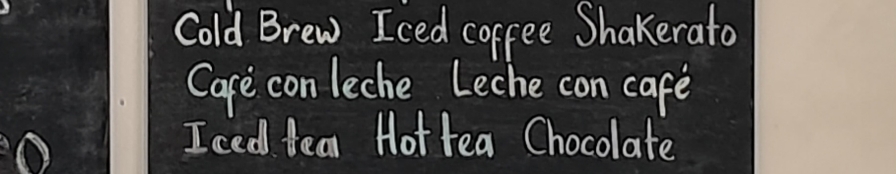 Cold Brew Iced coffee Shakerato
Café con leche Leche con café
Iced tea Hot tea Chocolate